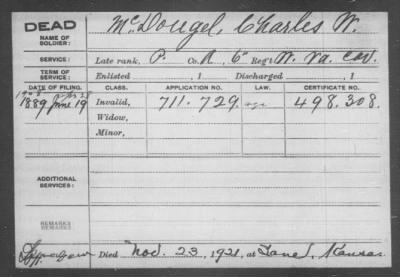 DEAD
NAME OF SOLDIER:
McDougel, Charles W.
SERVICE: Late rank, P. Co. A, 6" Reg't W. Va. Cav.
TERM OF SERVICE: Enlisted , 1 Discharged , 1
DATE OF FILING. CLASS. APPLICATION NO. LAW. CERTIFICATE NO.
1889 June 19 Invalid, 711.729. 498.308.
Widow,
Minor,
ADDITIONAL SERVICES:
REMARKS
Died Nov. 23, 1921, at Kansas.